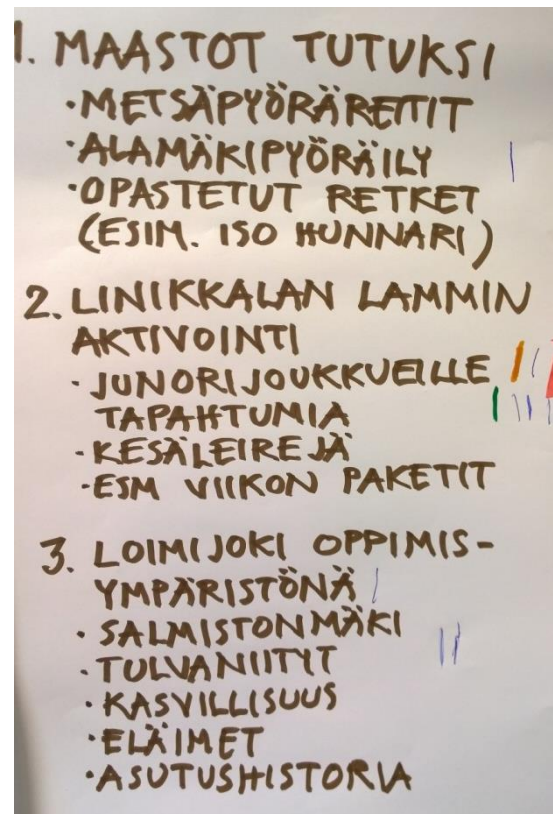 1. MAASTOT TUTUKSI
·METSÄPYÖRÄREITIT
·ALAMÄKIPYÖRÄILY
·OPASTETUT RETKET
(ESIM. ISO HUNNARI)
2. LINIKKALAN LAMMIN
AKTIVOINTI
· JUNORIJOUKKUEILLE
TAPAHTUMIA
·KESÄLEIREJÄ
·ESM VIIKON PAKETIT
3. LOIMIJOKI OPPIMIS-
YMPÄRISTÖNÄ
· SALMISTONMÄKI
· TULVANIITYT
· KASVILLISUUS
·ELÄIMET
·ASUTUSHISTORIA